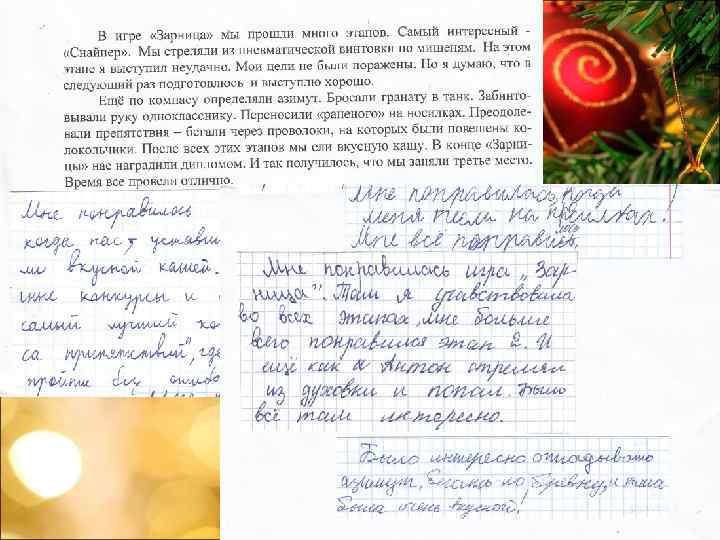 В игре «Зарница» мы прошли много этапов. Самый интересный -
«Снайпер». Мы стреляли из пневматической винтовки по мишеням. На этом
этапе я выступил неудачно. Мои цели не были поражены. Но я думаю, что в
следующий раз подготовлюсь и выступлю хорошо.
Ещё по компасу определяли азимут. Бросали гранату в танк. Забинто-
вывали руку однокласснику. Переносили «раненого» на носилках. Преодоле-
вали препятствия – бегали через проволоки, на которых были повешены ко-
локольчики. После всех этих этапов мы ели вкусную кашу. В конце «Зарни-
цы» нас наградили дипломом. И так получилось, что мы заняли третье место.
Время все провели отлично.
Мне понравилось, когда
меня несли на носилках!
Мне всё понравилось.
Мне понравилось
когда нас угощали
вкусной кашей.
конкурсы и
самый лучший
са препятствий", где
пройти без
Мне понравилась игра „Зар-
ница". Там я учавствовала
во всех этапах, мне больше
всего понравился этап 2. И
ещё как Антон стрелял
из духовки и попал. Было
всё там интересно.
Было интересно отгадывать
азимут, бегать по бревну, и каша
была очень вкусной!